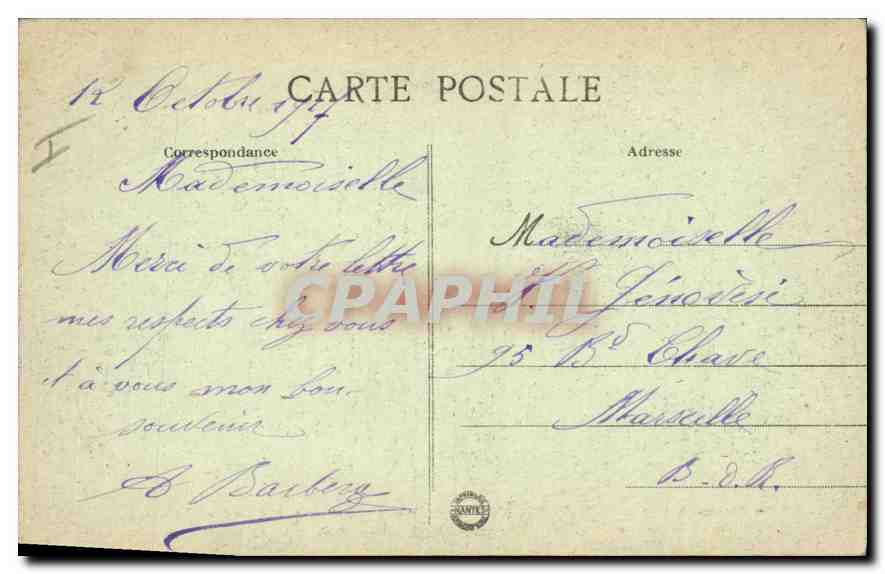 CARTE POSTALE
12 Octobre 1917
Correspondance
Mademoiselle
Merci de votre lettre
mes respects chez vous
et à vous mon bon
souvenir
A Barbery
Adresse
Mademoiselle
Génovèsi
95 Bd Chave
Marseille
B. d. R.
CPAPHIL
NANTES